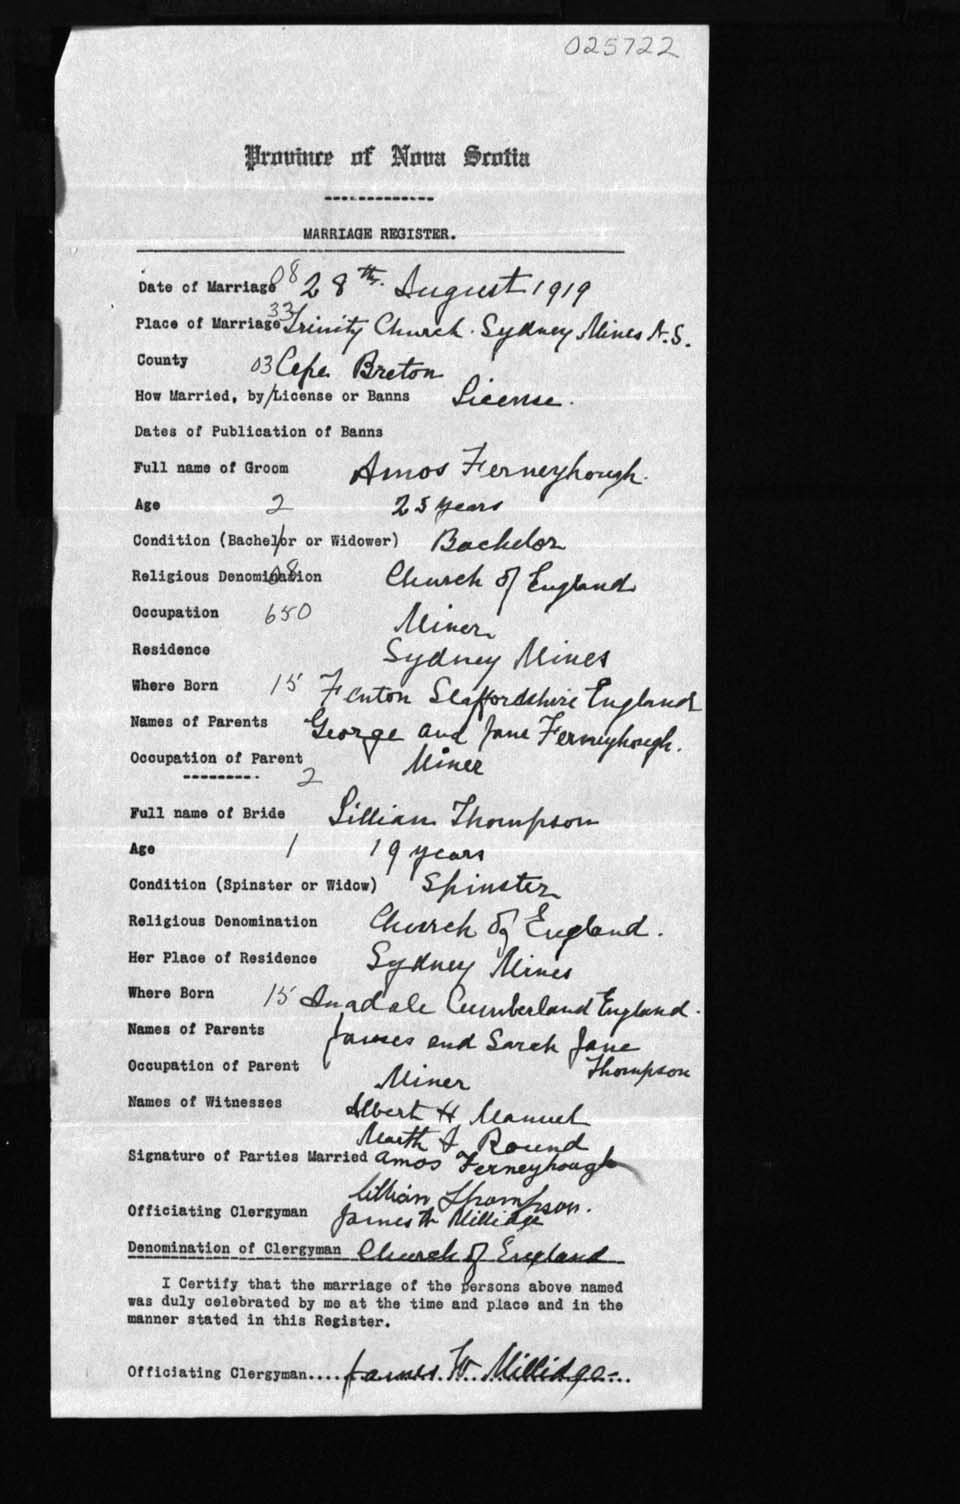 025722
Province of Nova Scotia
MARRIAGE REGISTER.
Date of Marriage 08 28th August 1919
Place of Marriage 33 Trinity Church. Sydney Mines N.S.
County 03 Cape Breton
How Married, by License or Banns License.
Dates of Publication of Banns
Full name of Groom Amos Ferneyhough.
Age 2 25 years
Condition (Bachelor or Widower) Bachelor
Religious Denomination 08 Church of England
Occupation 650 Miner
Residence Sydney Mines
Where Born 15 Fenton Staffordshire England
Names of Parents George and Jane Ferneyhough.
Occupation of Parent Miner
2
Full name of Bride Lillian Thompson
Age 1 19 years
Condition (Spinster or Widow) Spinster
Religious Denomination Church of England.
Her Place of Residence Sydney Mines
Where Born 15 Cumberland England.
Names of Parents James and Sarah Jane
Thompson
Occupation of Parent Miner
Names of Witnesses Albert H Manuel
Round
Signature of Parties Married Amos Ferneyhough
Lillian Thompson.
Officiating Clergyman James W Millidge
Denomination of Clergyman Church of England
I Certify that the marriage of the persons above named
was duly celebrated by me at the time and place and in the
manner stated in this Register.
Officiating Clergyman.... James. W. Millidge..